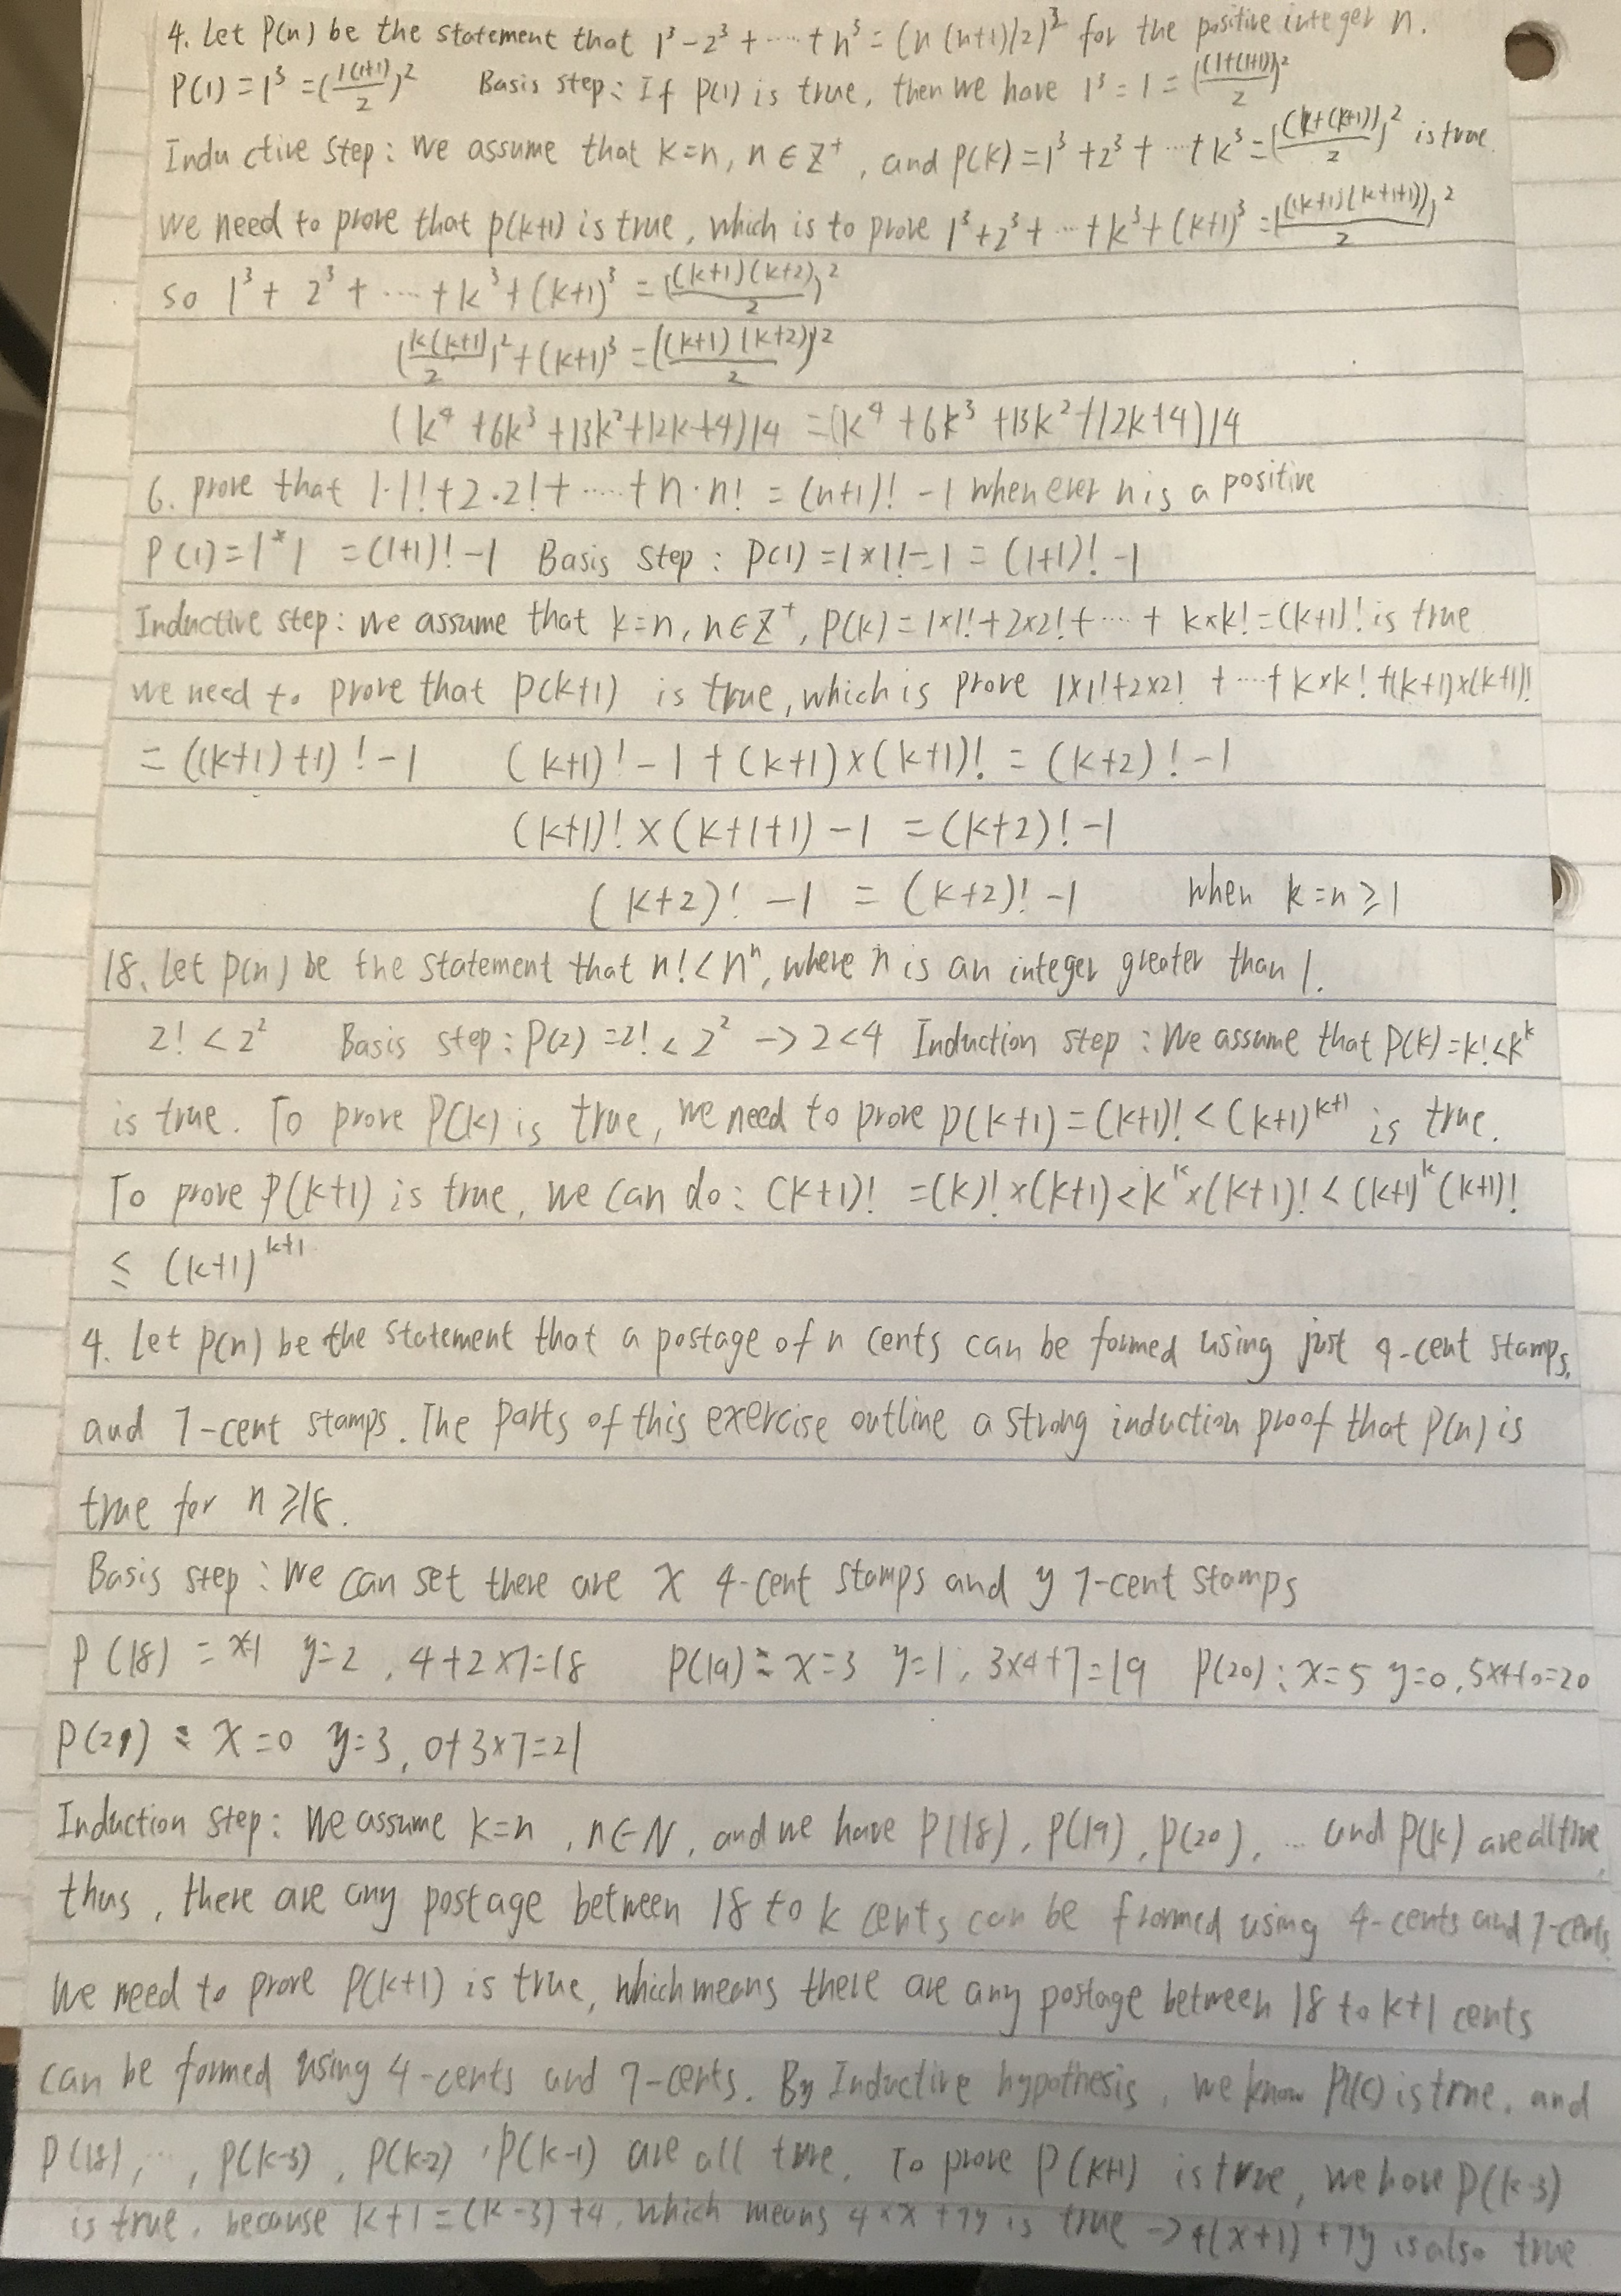 4. Let P(n) be the statement that 1³ - 2³ + ····· + n³ = (n (n+1)/2)² for the positive integer n.
P(1) = 1³ = (1(1+1)/2)² Basis step: If P(1) is true, then we have 1³ = 1 = ((1+(1+1))/2)²
Inductive Step: We assume that k=n, n∈Z⁺, and P(k) = 1³ + 2³ + ··· + k³ = ((k+(k+1))/2)² is true.
we need to prove that p(k+1) is true, which is to prove 1³+2³+ ··· +k³+(k+1)³ = (((k+1)(k+1+1))/2)²
so 1³ + 2³ + ···· + k³ + (k+1)³ = ((k+1)(k+2)/2)²
(k(k+1)/2)² + (k+1)³ = ((k+1)(k+2)/2)²
(k⁴ +6k³ +13k²+12k+4)/4 = (k⁴ +6k³ +13k²+12k+4)/4
6. prove that 1·1!+2·2!+ ····· + n·n! = (n+1)! -1 whenever n is a positive
P(1) = 1*1 = (1+1)! -1 Basis step: P(1) = 1×1! = 1 = (1+1)! -1
Inductive step: We assume that k=n, n∈Z⁺, P(k) = 1×1!+2×2!+ ···· + k×k! = (k+1)! is true
we need to prove that P(k+1) is true, which is prove 1×1!+2×2! + ···+ k×k! +(k+1)×(k+1)!
= ((k+1)+1)! -1 (k+1)! -1 + (k+1)×(k+1)! = (k+2)! -1
(k+1)! × (k+1+1) -1 = (k+2)! -1
(k+2)! -1 = (k+2)! -1 when k=n≥1
18. Let P(n) be the statement that n! < nⁿ, where n is an integer greater than 1.
2! < 2² Basis step: P(2) = 2! < 2² -> 2<4 Induction step: We assume that P(k) = k! < kᵏ
is true. To prove P(k) is true, we need to prove p(k+1) = (k+1)! < (k+1)ᵏ⁺¹ is true.
To prove P(k+1) is true, we can do: (k+1)! = (k)! × (k+1) < kᵏ × (k+1)! < (k+1)ᵏ (k+1)!
≤ (k+1)ᵏ⁺¹
4. Let P(n) be the statement that a postage of n cents can be formed using just 4-cent stamps.
and 7-cent stamps. The parts of this exercise outline a strong induction proof that P(n) is
true for n ≥18.
Basis step: We can set there are x 4-cent stamps and y 7-cent stamps
P(18) = x=1 y=2, 4+2×7=18 P(19): x=3 y=1, 3×4+7=19 P(20): x=5 y=0, 5×4+0=20
P(21): x=0 y=3, 0+3×7=21
Induction step: We assume k=n, n∈N, and we have P(18), P(19), P(20), ... and P(k) are all true,
thus, there are any postage between 18 to k cents can be formed using 4-cents and 7-cents.
We need to prove P(k+1) is true, which means there are any postage between 18 to k+1 cents
can be formed using 4-cents and 7-cents. By Inductive hypothesis, we know P(k) is true, and
P(18), ···, P(k-3), P(k-2), P(k-1) are all true. To prove P(k+1) is true, we have P(k-3)
is true, because k+1 = (k-3)+4, which means 4×x +7y is true -> 4(x+1)+7y is also true